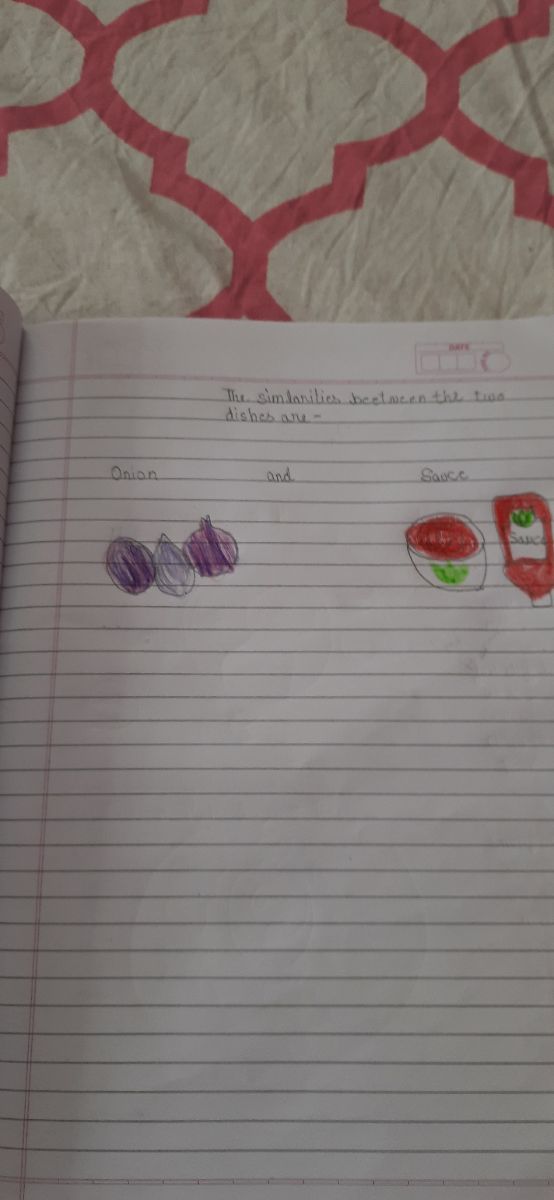 DATE
The similarities beetween the two
dishes are -
Onion and Sauce
Sauce